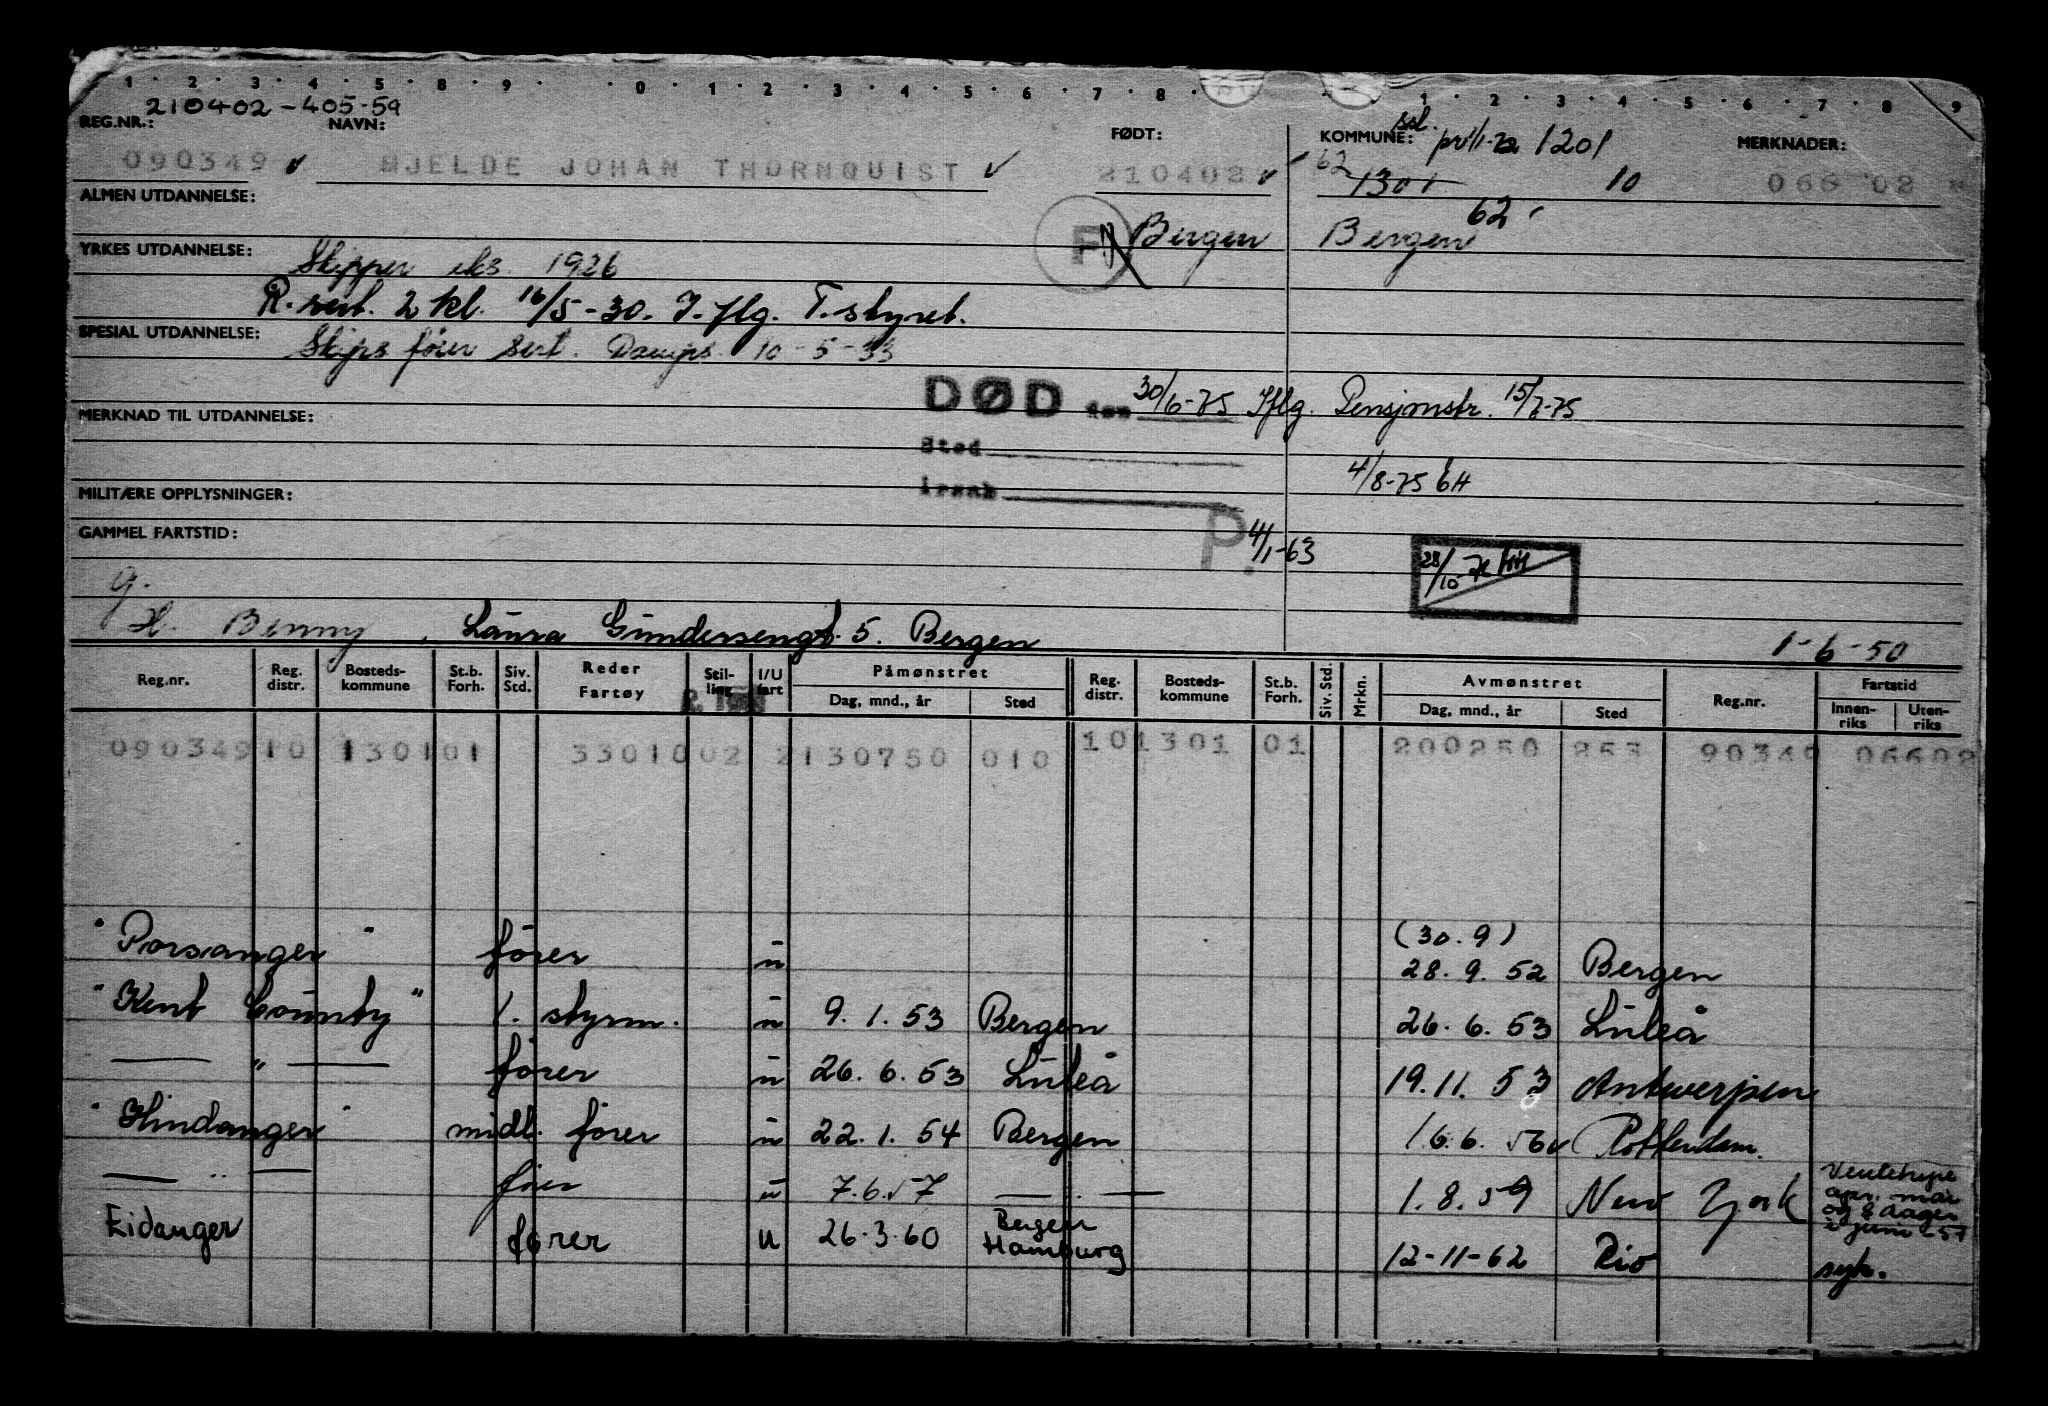 1 · 2 · 3 · 4 · 5 · 8 · 9 · · 0 · 1 · 2 · 3 · 4 · 5 · 6 · 7 · 8 · 1 · 2 · 3 · 4 · 5 · 6 · 7 · 8 · 9
210402-405-59
REG.NR.: NAVN: FØDT: KOMMUNE: 1201 MERKNADER:
090349 HJELDE JOHAN THORNQUIST 210402 62 1301 10 066 02
ALMEN UTDANNELSE: 62
F Bergen Bergen
YRKES UTDANNELSE: Skipper eks. 1926
R. sert. 2 kl. 16/5-30. I. flg. T. styret.
SPESIAL UTDANNELSE: Skips fører sert. Damps. 10-5-33
DØD den 30/6-75 Iflg. Pensjonstr. 15/7-75
MERKNAD TIL UTDANNELSE:
Sted
4/8-75 EH
årsak
MILITÆRE OPPLYSNINGER:
GAMMEL FARTSTID: P. 4/1-63
28/10-71 HH
g.
H. Benny, Laura Gundersengt. 5. Bergen 1-6-50
Reg.nr. Reg. distr. Bosteds-kommune St.b. Forh. Siv. Std. Reder Fartøy Stil-ling I/U fart Påmønstret Dag, mnd., år Sted Reg. distr. Bosteds-kommune St.b. Forh. Siv. Std. Mrkn. Avmønstret Dag, mnd., år Sted Reg.nr. Fartstid Innen-riks Uten-riks
090349 10 1301 01 33010 02 2 130750 010 10 1301 01 200250 253 90349 06602
"Porsanger" fører u (30.9) 28.9.52 Bergen
"Kent County" 1. styrm. u 9.1.53 Bergen 26.6.53 Luleå
— " — fører u 26.6.53 Luleå 19.11.53 Antwerpen
"Hindanger" midl. fører u 22.1.54 Bergen 16.6.56 Rotterdam.
— " — fører u 7.6.57 — " — 1.8.59 New York Ventehyre apr. mai og 8 dager i juni 57
Eidanger fører u 26.3.60 Bergen Hamburg 12-11-62 Rio syk.